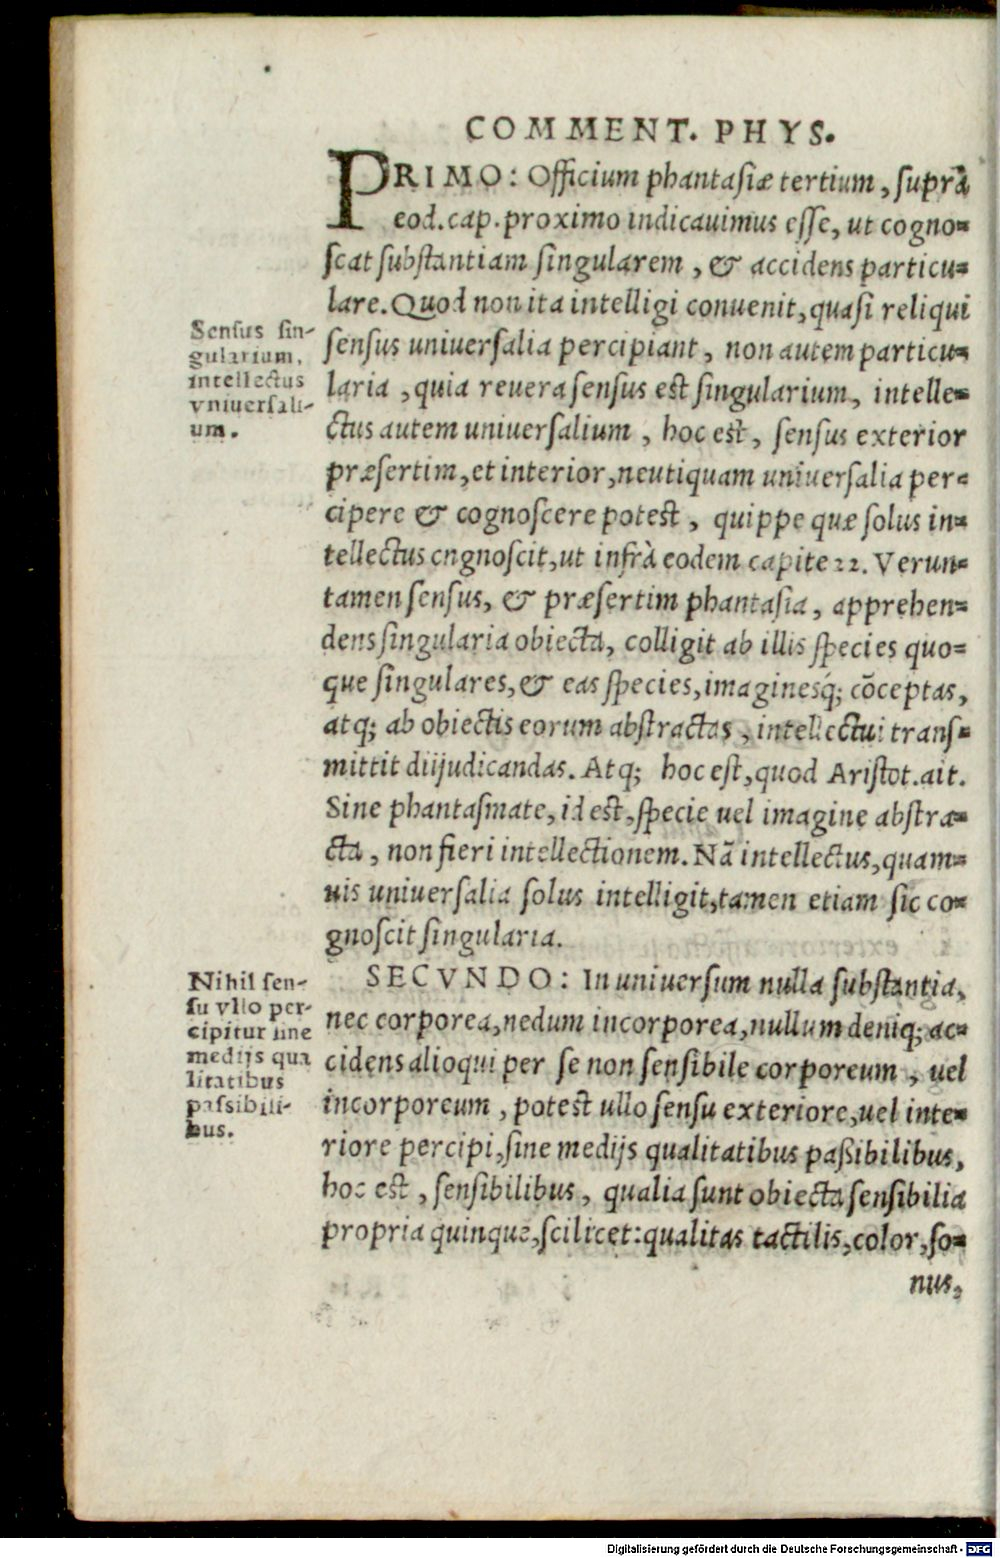 COMMENT. PHYS.
PRIMO: Officium phantasiæ tertium, suprà
eod. cap. proximo indicauimus esse, ut cogno-
scat substantiam singularem, & accidens particu-
lare. Quod non ita intelligi conuenit, quasi reliqui
sensus uniuersalia percipiant, non autem particu-
laria, quia reuera sensus est singularium, intelle-
ctus autem uniuersalium, hoc est, sensus exterior
præsertim, et interior, neutiquam uniuersalia per-
cipere & cognoscere potest, quippe quæ solus in-
tellectus cngnoscit, ut infrà eodem capite 22. Verun-
tamen sensus, & præsertim phantasia, apprehen-
dens singularia obiecta, colligit ab illis species quo-
que singulares, & eas species, imaginesq́; cōceptas,
atq; ab obiectis eorum abstractas, intellectui trans-
mittit diijudicandas. Atq; hoc est, quod Aristot. ait.
Sine phantasmate, id est, specie uel imagine abstra-
cta, non fieri intellectionem. Nā intellectus, quam-
uis uniuersalia solus intelligit, tamen etiam sic co-
gnoscit singularia.
Sensus sin-
gularium,
intellectus
vniuersali-
um.
SECVNDO: In uniuersum nulla substantia,
nec corporea, nedum incorporea, nullum deniq; ac-
cidens alioqui per se non sensibile corporeum, uel
incorporeum, potest ullo sensu exteriore, uel inte-
riore percipi, sine medijs qualitatibus paßibilibus,
hoc est, sensibilibus, qualia sunt obiecta sensibilia
propria quinque, scilicet: qualitas tactilis, color, so-
nus,
Nihil sen-
su vllo per-
cipitur sine
medijs qua
litatibus
passibili-
bus.
Digitalisierung gefördert durch die Deutsche Forschungsgemeinschaft - DFG